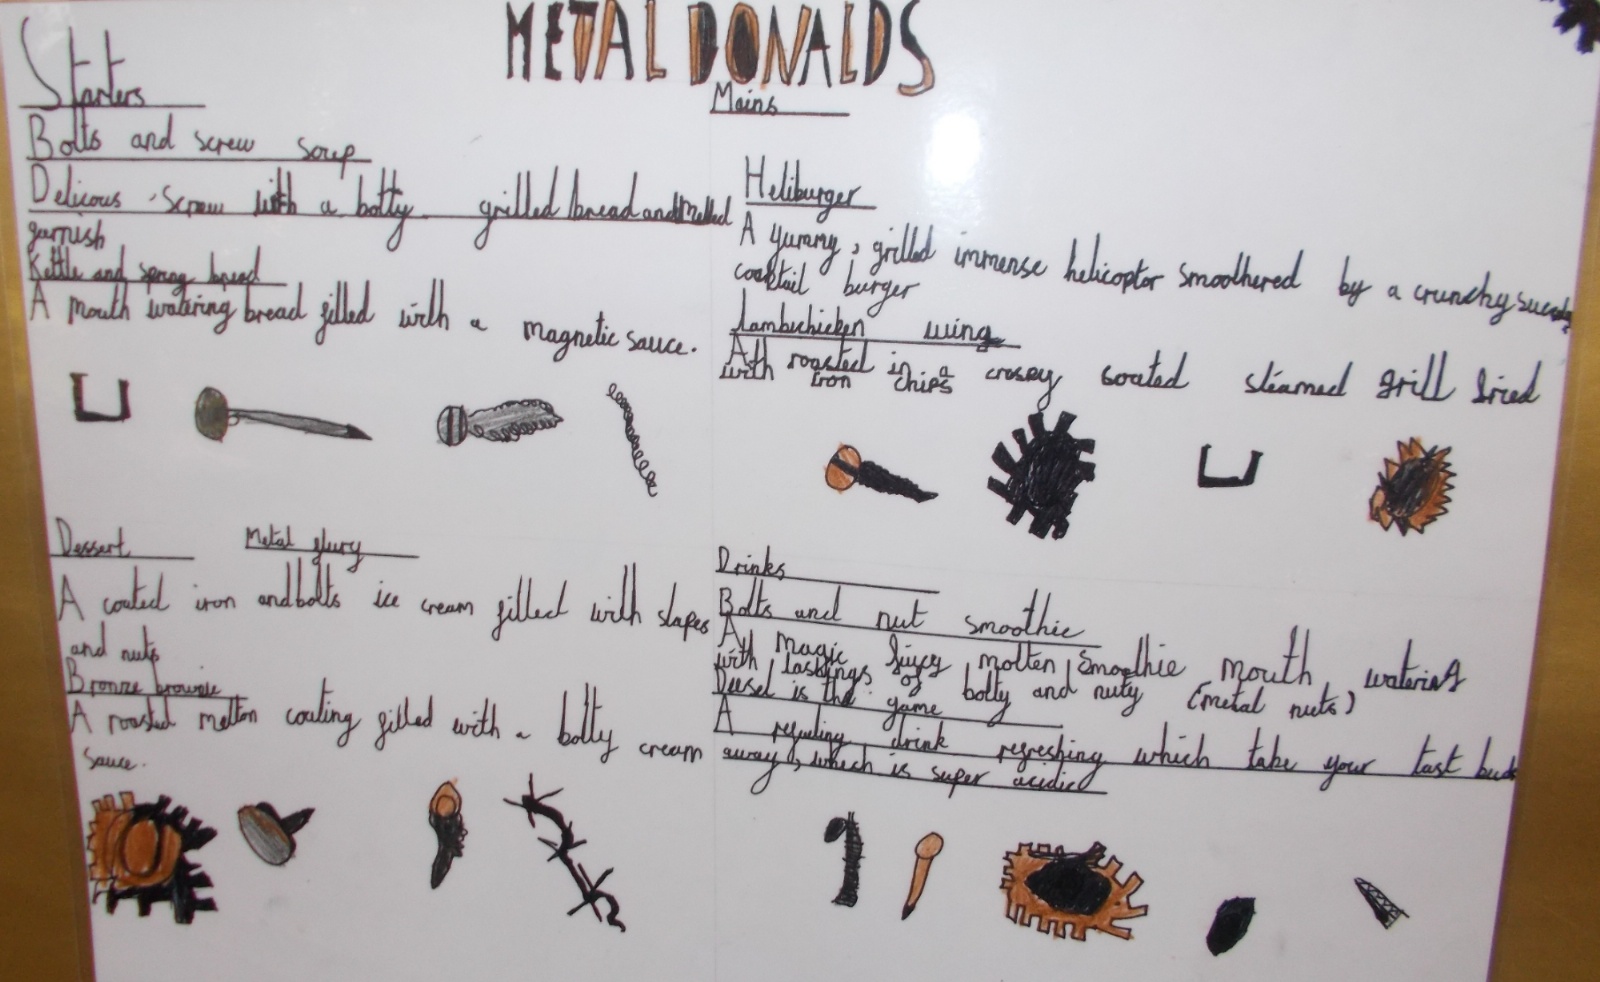 METAL DONALDS
Starters
Bolts and screw soup
Delicous screw with a bolty grilled bread and Melted
garnish
Kettle and spring bread
A mouth watering bread filled with a magnetic sauce.
Mains
Heliburger
A yummy, grilled immense helicoptor smoothered by a crunchy
cocktail burger
Lambchicken wing
A roasted in a crospy coated steamed grill fried
with iron chips
Dessert Metal flury
A coated iron and bolts ice cream filled with slapes
and nuts
Bronze brownie
A roasted melton coating filled with a bolty cream
sauce.
Drinks
Bolts and nut smoothie
A magic juicy molten smoothie mouth watering
with lashings of bolty and nuty (metal nuts)
Deisel is the game
A refueling drink refreshing which take your tast buds
away, which is super acidic